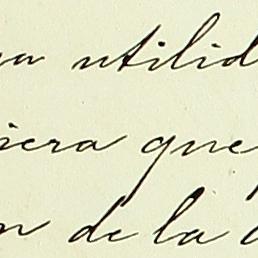 utilid
iera que
n de la